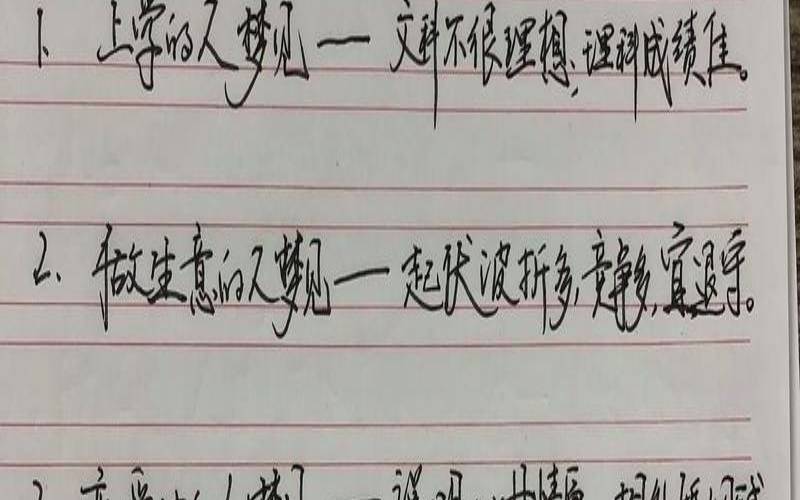 1. 上学的人梦见——文科不很理想,理科成绩佳。
2、做生意的人梦见——起伏波折多,竞争多,宜退守。